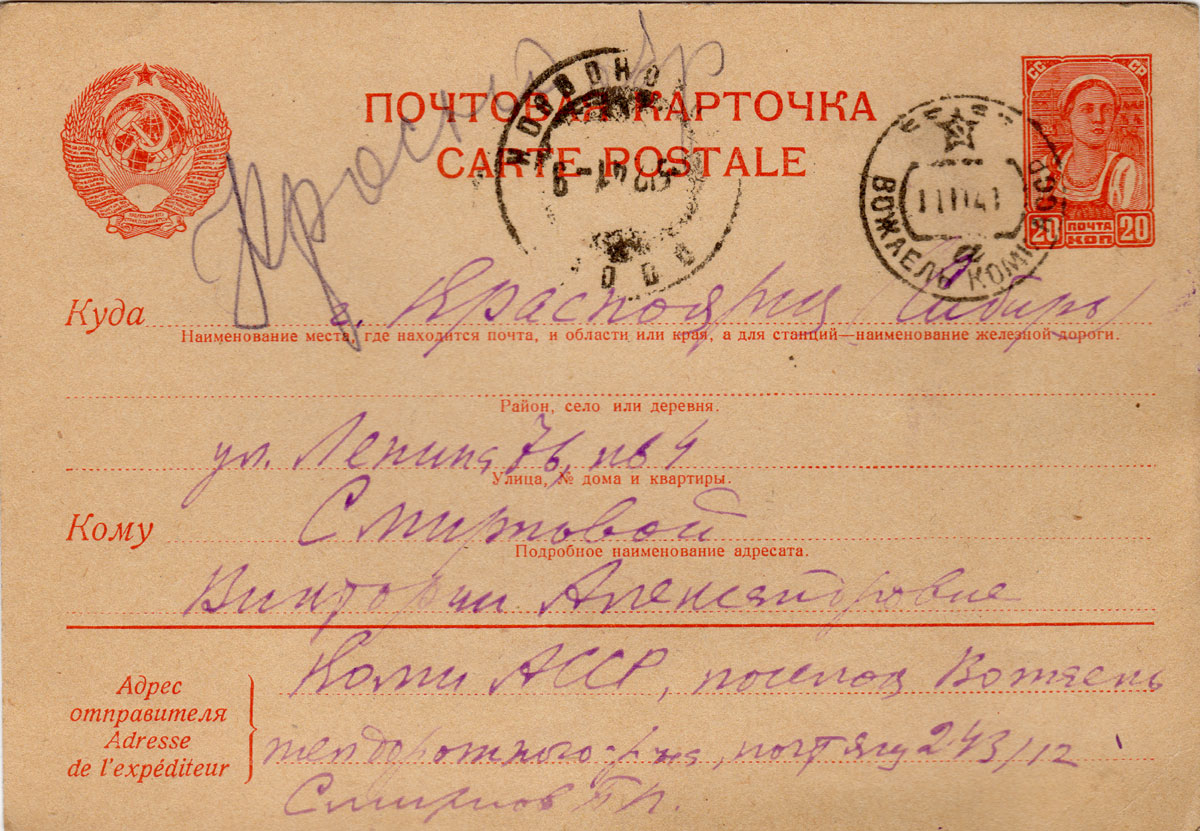 ПОЧТОВАЯ КАРТОЧКА
CARTE POSTALE
СС СР
20 ПОЧТА КОП 20
ВОЖАЕЛЬ КОМИ АССР
Куда г. Красноярск (Сибирь)
Наименование места, где находится почта, и области или края, а для станций—наименование железной дороги.
Район, село или деревня.
ул. Ленина 76, кв 4
Улица, № дома и квартиры.
Кому Смирновой
Подробное наименование адресата.
Виктории Александровне
Адрес отправителя
Adresse de l'expéditeur
Коми АССР, поселок Вожаель
желдорожного р-на, почт ящ 243/12
Смирнов